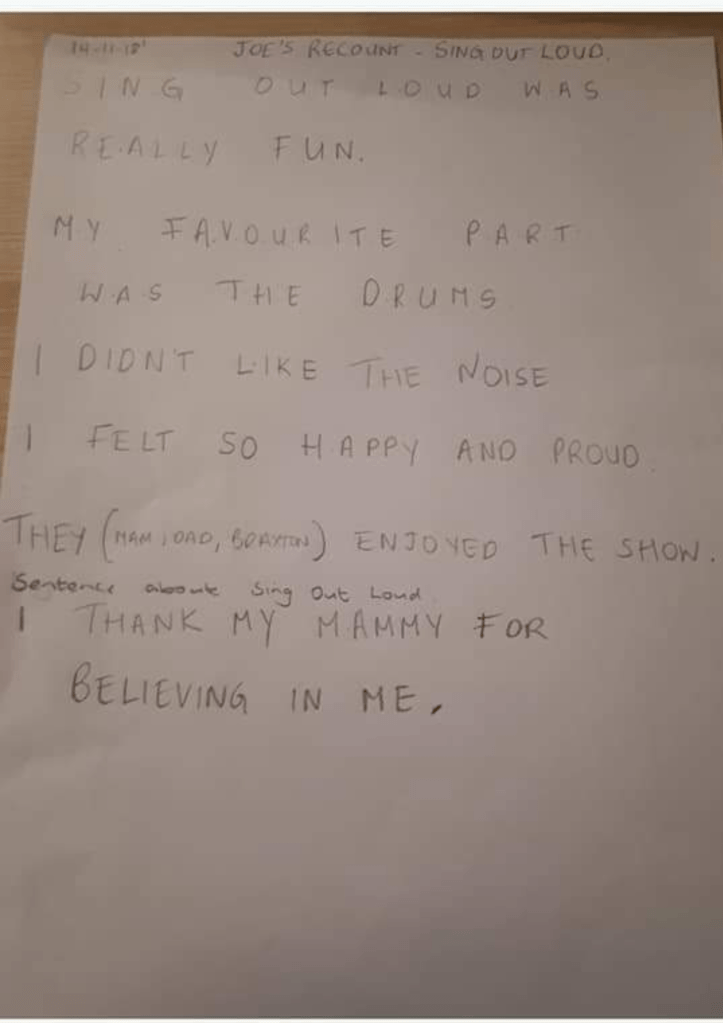 14-11-18' JOE'S RECOUNT - SING OUT LOUD.
SING OUT LOUD WAS
REALLY FUN.
MY FAVOURITE PART
WAS THE DRUMS
I DIDN'T LIKE THE NOISE
I FELT SO HAPPY AND PROUD.
THEY (MAM, DAD, BRAYTON) ENJOYED THE SHOW.
Sentence about Sing Out Loud
I THANK MY MAMMY FOR
BELIEVING IN ME.